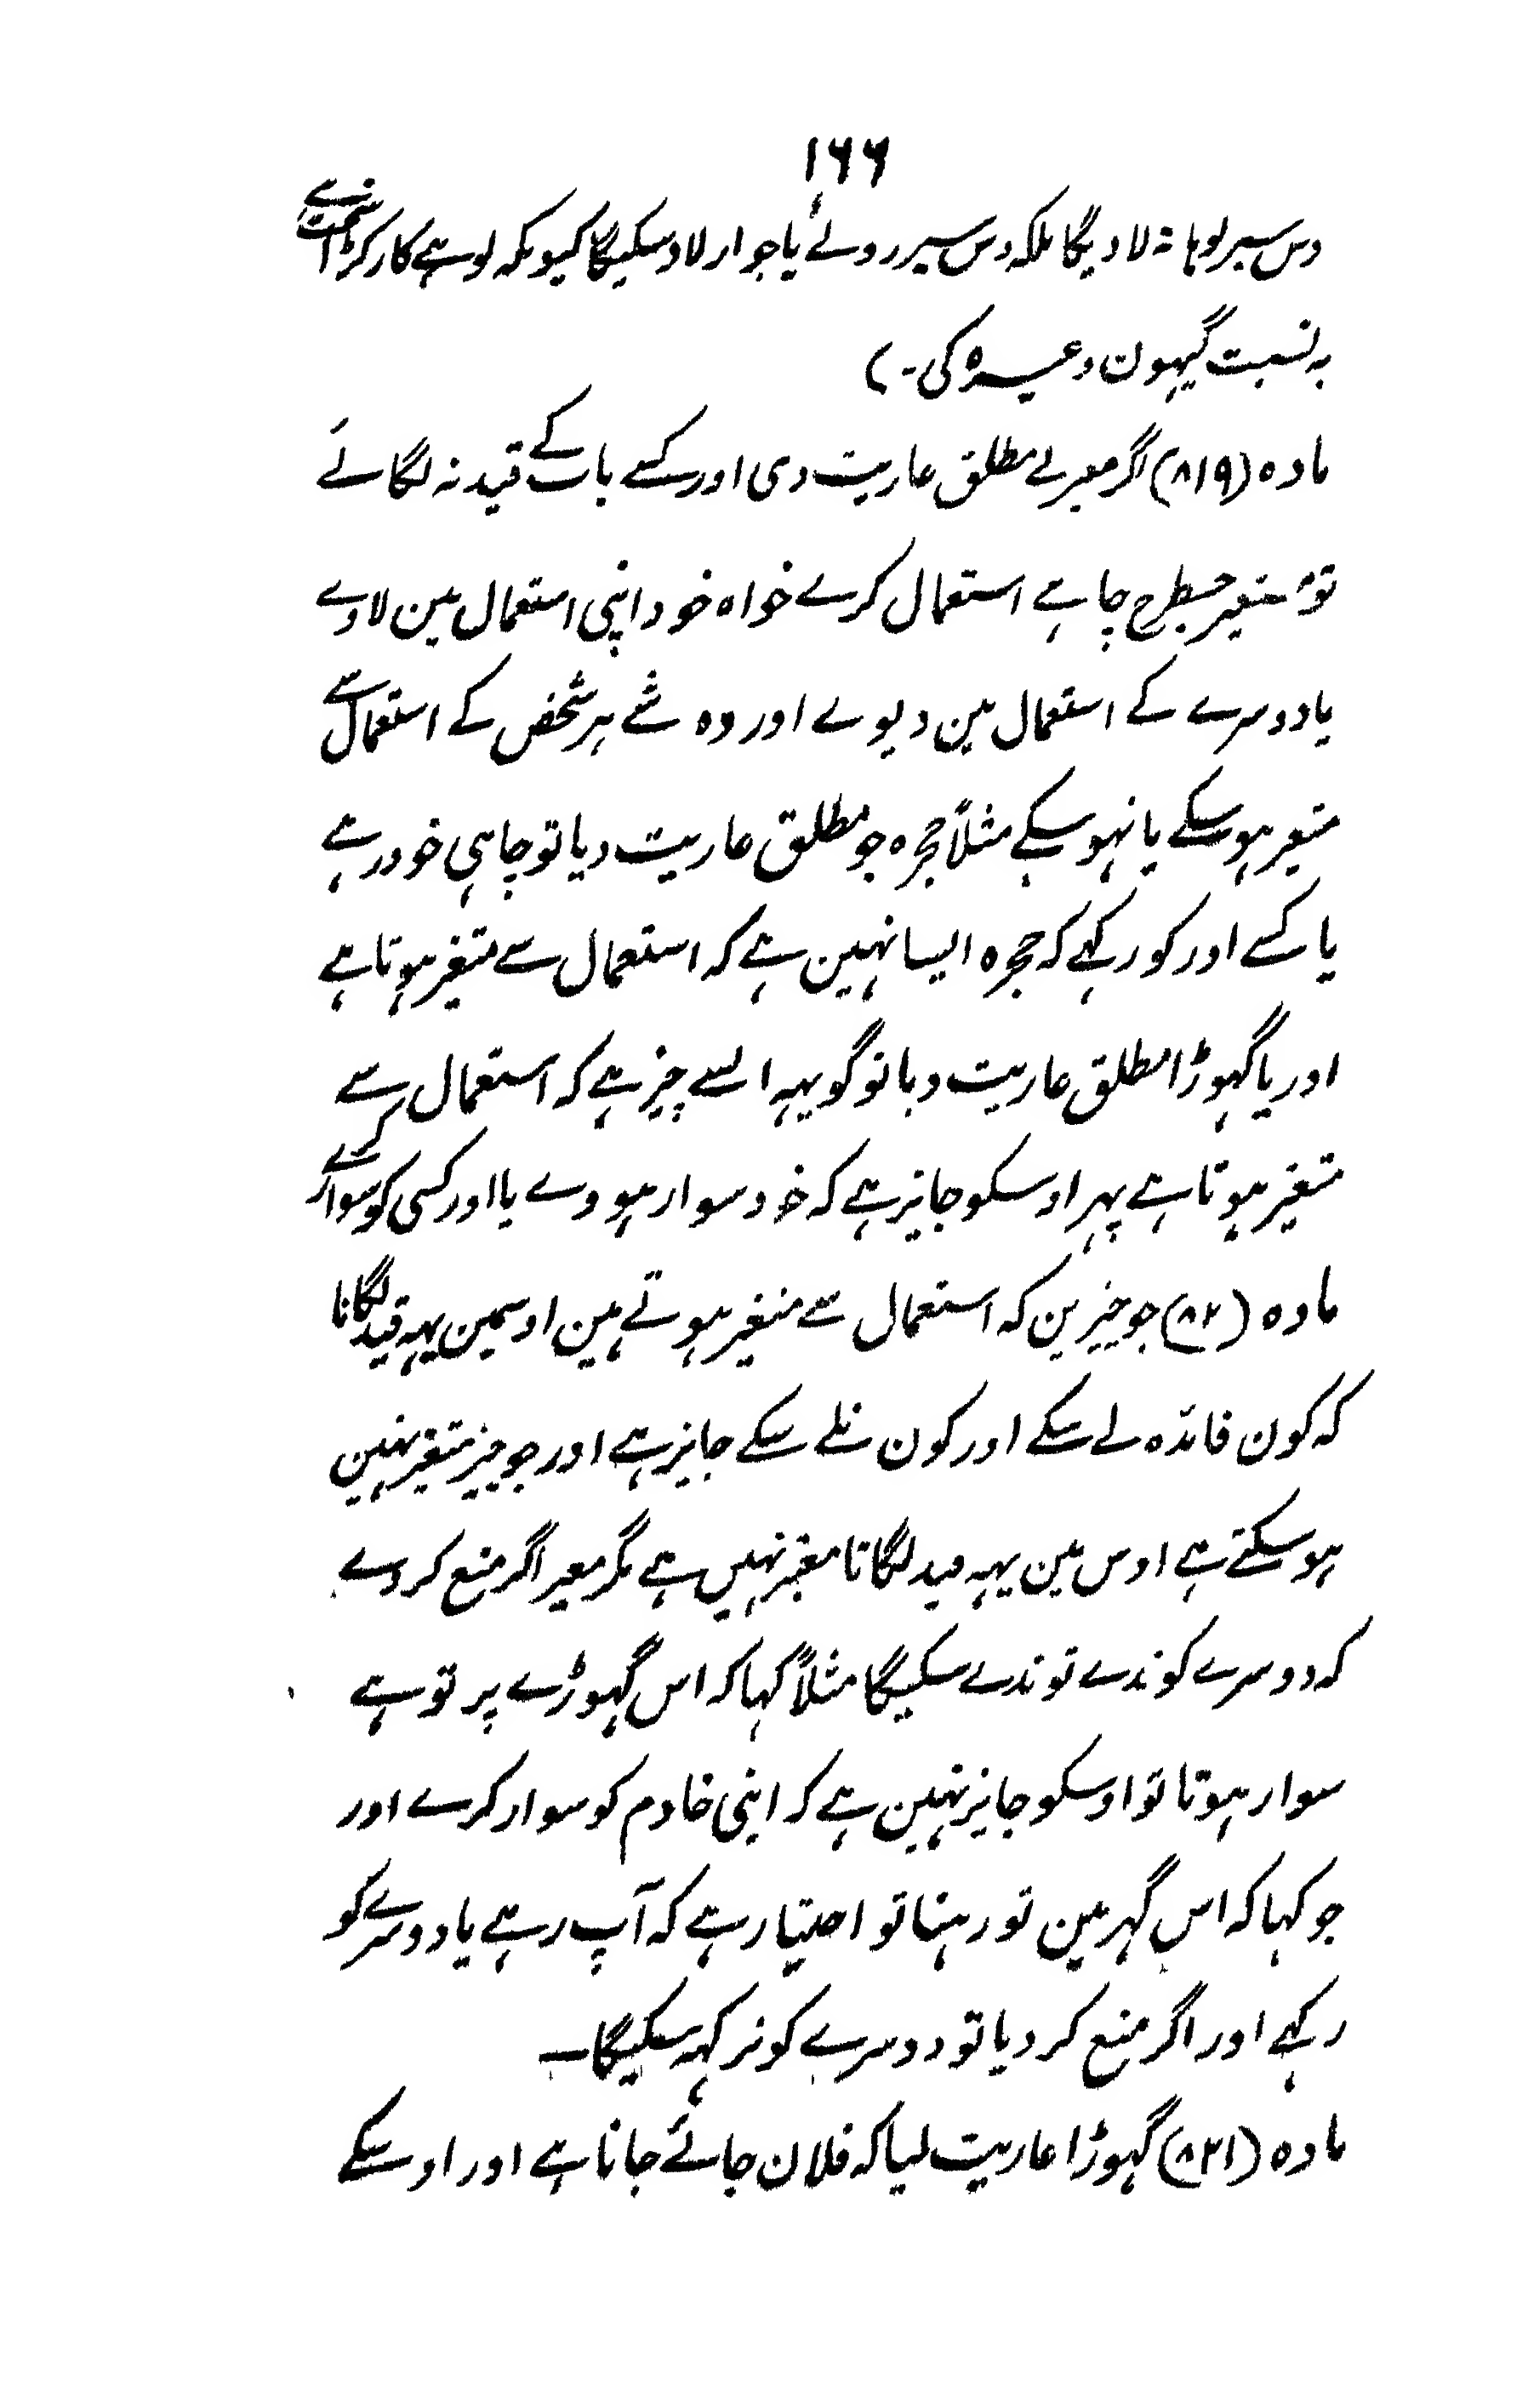 ۱۶۶
دس سیر لوہا نہ لادیگا بلکہ دس سیر روئے یا جوار لاد سکیگا کیونکہ لوہے کا رگڑا سخت ہے
بہ نسبت گیہون وغیرہ کی۔)
مادہ (۸۱۹) اگر معیر نے مطلق عاریت دی اور کسے بات کے قید نہ لگائے
تو مستعیر جسطرح چاہے استعمال کرے خواہ خود اپنی استعمال مین لاوے
یا دوسرے کے استعمال مین دیوے اور وہ شے ہر شخص کے استعمال سے
متغیر ہو سکے یا نہو سکے مثلاً حجرہ جو مطلق عاریت دیا تو چاہی خود رہے
یا کسے اور کو رکہے کہ حجرہ ایسا نہین ہے کہ استعمال سے متغیر ہوتا ہے
اور یا گہوڑا مطلق عاریت دیا تو گو یہہ ایسے چیز ہے کہ استعمال سے
متغیر ہوتا ہے پہر اوسکو جایز ہے کہ خود سوار ہووے یا اور کسی کو سوار کرے
مادہ (۸۲) جو چیزین کہ استعمال سے متغیر ہوتے ہین اوسمین یہہ قید لگانا
کہ کون فائدہ لے سکے اور کون نلے سکے جایز ہے اور جو چیز متغیر نہین
ہو سکتے ہے اوس مین یہہ قید لگانا معتبر نہین ہے مگر معیر اگر منع کردے
کہ دوسرے کو ندے تو ندے سکیگا مثلاً کہا کہ اس گہوڑے پر تو ہے
سوار ہوتا تو اوسکو جایز نہین ہے کہ اپنی خادم کو سوار کرے اور
جو کہا کہ اس گہر مین تو رہنا تو اختیار ہے کہ آپ رہے یا دوسرے کو
رکہے اور اگر منع کر دیا تو دوسرے کو نرکہہ سکیگا۔
مادہ (۸۲۱) گہوڑا عاریت لیا کہ فلان جائے جانا ہے اور اوسکے